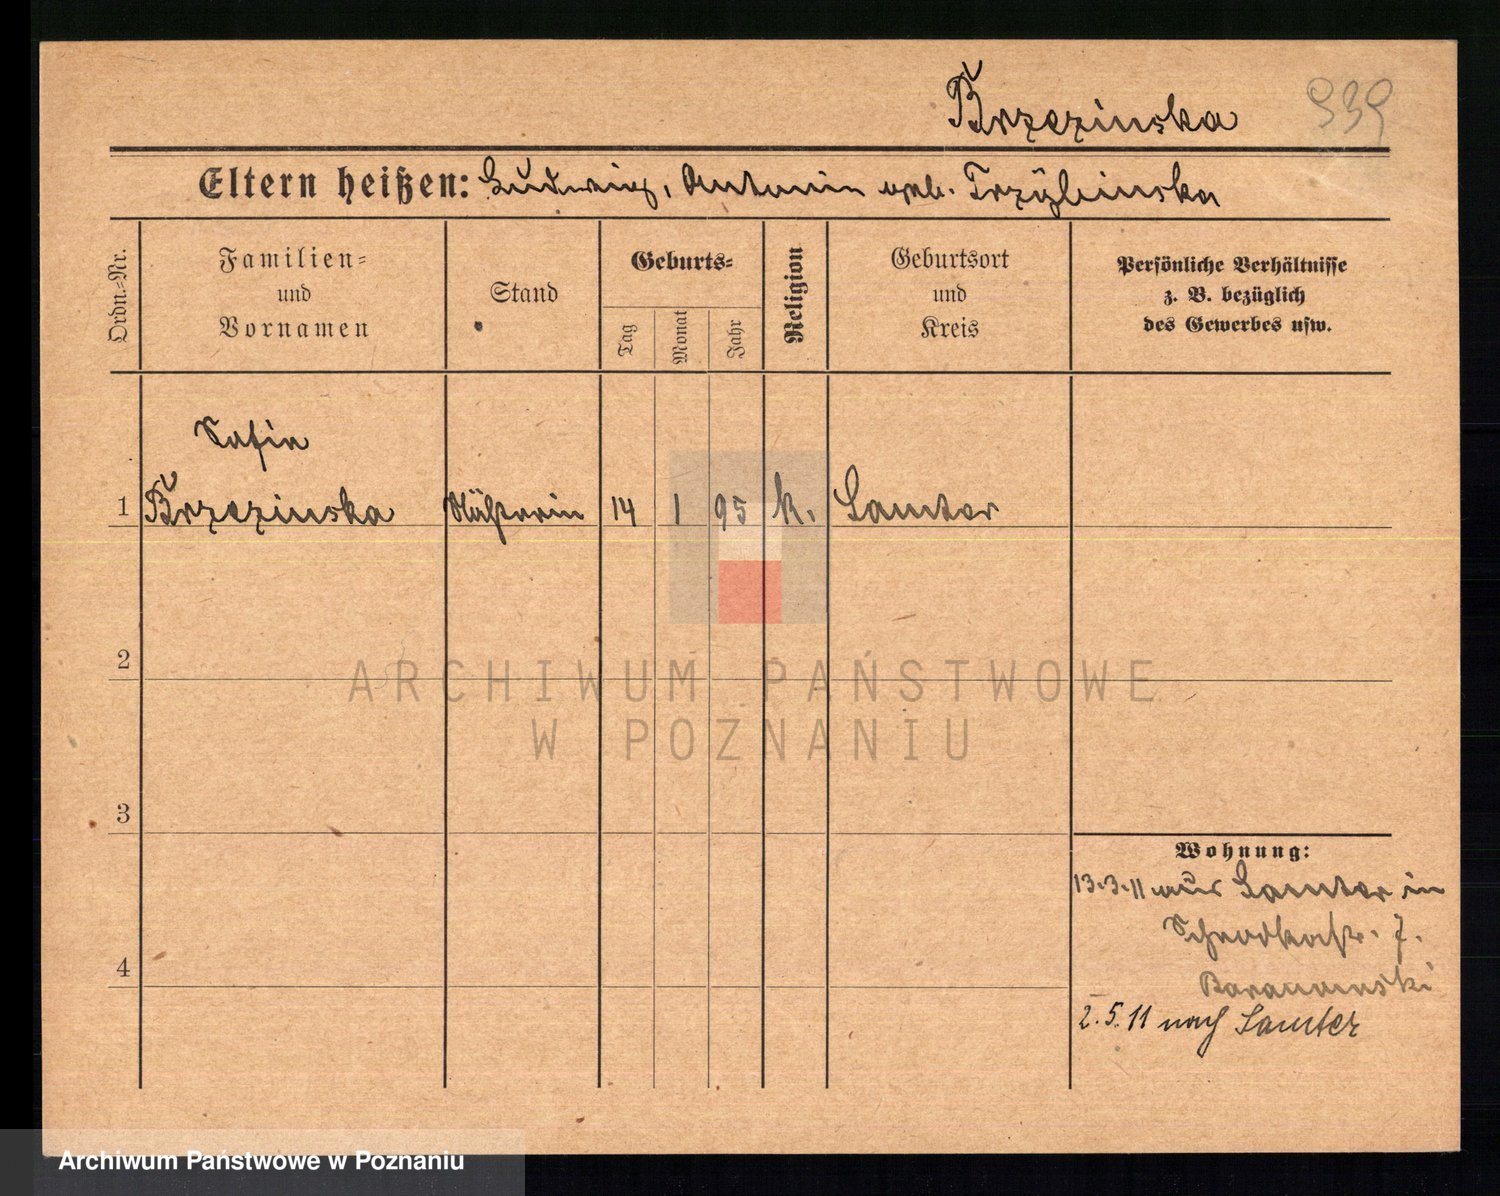 Brzezinska 939
Eltern heißen: Ludwig, Antonie geb. Trzybinska
Ordn.-Nr.
Familien-
und
Vornamen
Stand
Geburts-
Tag
Monat
Jahr
Religion
Geburtsort
und
Kreis
Persönliche Verhältnisse
z. B. bezüglich
des Gewerbes usw.
Sofie
1 Brzezinska Näherin 14 1 95 k. Samter
2
3
4
Wohnung:
13.3.11 aus Samter in
Schrodkastr. 7.
Baranowski
2.5.11 nach Samter
ARCHIWUM PAŃSTWOWE
W POZNANIU
Archiwum Państwowe w Poznaniu